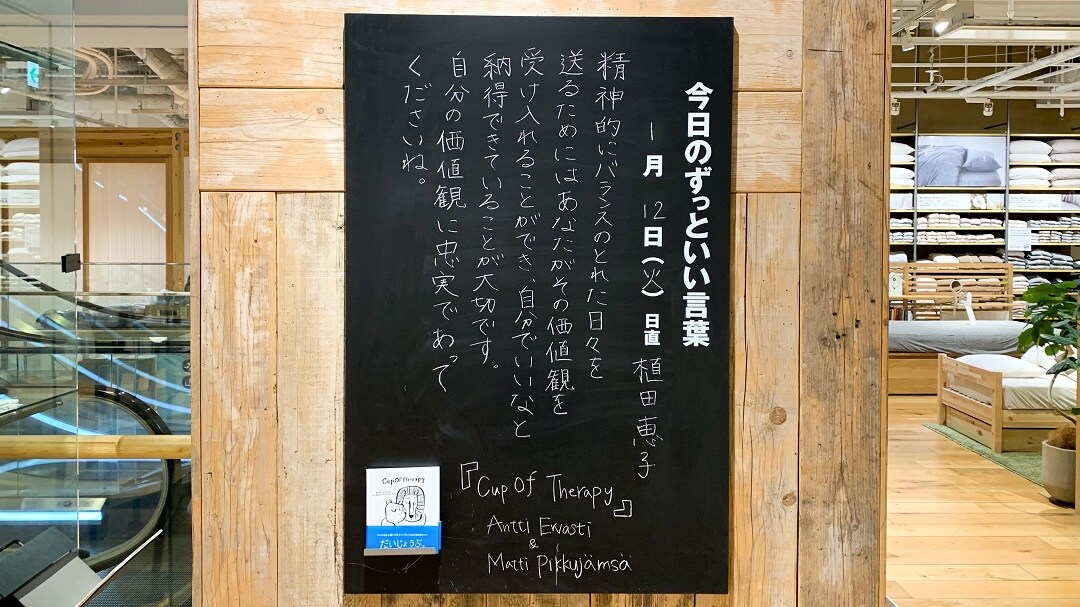 今日のずっといい言葉
1月12日(火) 日直 植田恵子
精神的にバランスのとれた日々を
送るためにはあなたがその価値観を
受け入れることができ、自分でいいなと
納得できていることが大切です。
自分の価値観に忠実であって
くださいね。
『Cup Of Therapy』
Antti Ervasti
&
Matti Pikkujämsä
Cup Of Therapy
だいじょうぶ。